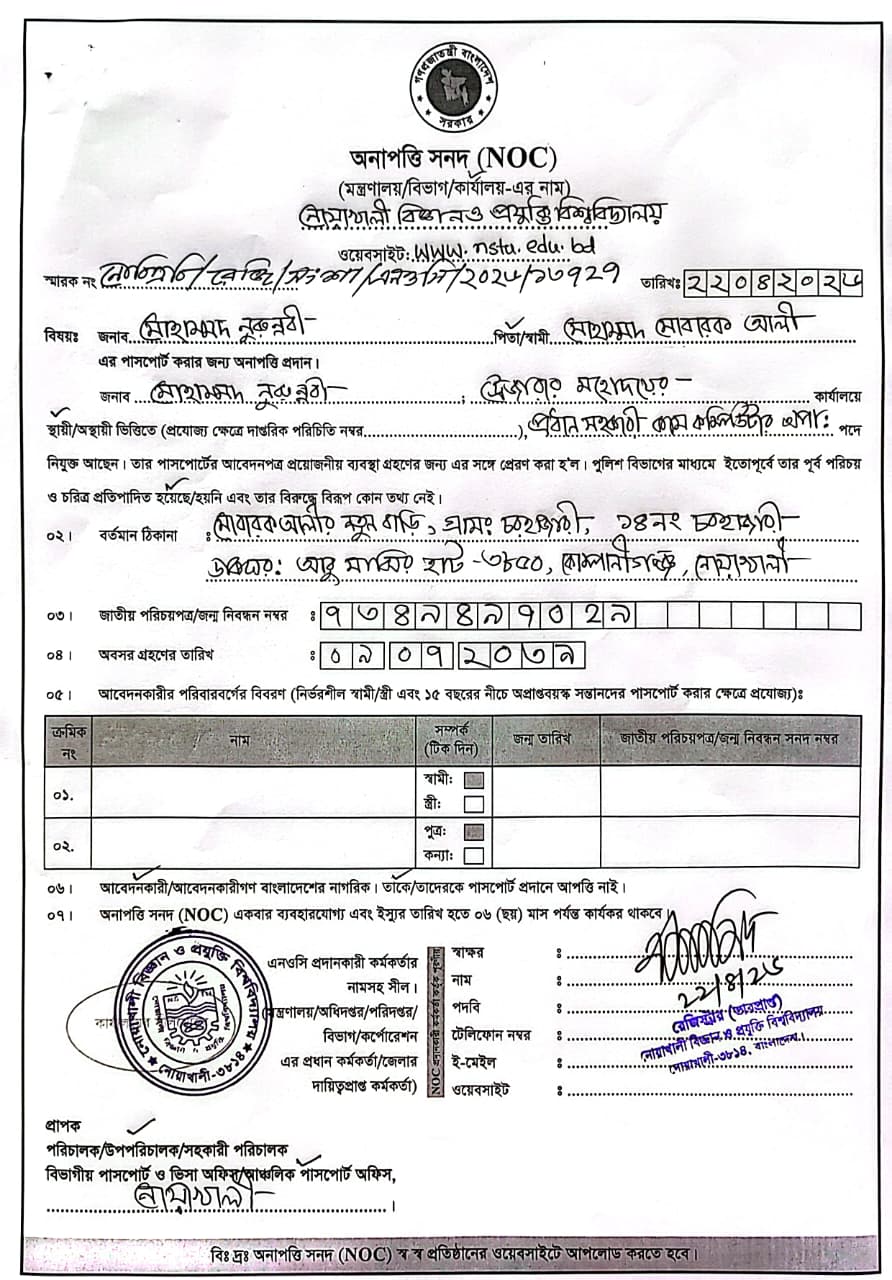 গণপ্রজাতন্ত্রী বাংলাদেশ
সরকার
অনাপত্তি সনদ (NOC)
(মন্ত্রণালয়/বিভাগ/কার্যালয়-এর নাম)
নোয়াখালী বিজ্ঞান ও প্রযুক্তি বিশ্ববিদ্যালয়
ওয়েবসাইট: www.nstu.edu.bd
স্মারক নং নোবিপ্রবি/রেজি/সংশা/এনওসি/২০২৫/১৩৭২৭ তারিখঃ ২২০৪২০২৫
বিষয়ঃ জনাব মোহাম্মদ নুরুন্নবী পিতা/স্বামী মোহাম্মদ মোবারক আলী
এর পাসপোর্ট করার জন্য অনাপত্তি প্রদান।
জনাব মোহাম্মদ নুরুন্নবী ; ট্রেজারার মহোদয়ের কার্যালয়ে
স্থায়ী/অস্থায়ী ভিত্তিতে (প্রযোজ্য ক্ষেত্রে দাপ্তরিক পরিচিতি নম্বর..............), প্রধান সহকারী কাম কম্পিউটার অপা: পদে
নিযুক্ত আছেন। তার পাসপোর্টের আবেদনপত্র প্রয়োজনীয় ব্যবস্থা গ্রহণের জন্য এর সঙ্গে প্রেরণ করা হ'ল। পুলিশ বিভাগের মাধ্যমে ইতোপূর্বে তার পূর্ব পরিচয়
ও চরিত্র প্রতিপাদিত হয়েছে/হয়নি এবং তার বিরুদ্ধে বিরূপ কোন তথ্য নেই।
০২। বর্তমান ঠিকানা : মোবারক আলীর নতুন বাড়ি, গ্রামঃ চরহাজারী, ১৪নং চরহাজারী
ডাকঘর: আবু মাঝির হাট -৩৮৫০, কোম্পানীগঞ্জ, নোয়াখালী
০৩। জাতীয় পরিচয়পত্র/জন্ম নিবন্ধন নম্বর ঃ ৭৩৪৯৪৯৭০২৯
০৪। অবসর গ্রহণের তারিখ ঃ ০৯০৭২০৩৯
০৫। আবেদনকারীর পরিবারবর্গের বিবরণ (নির্ভরশীল স্বামী/স্ত্রী এবং ১৫ বছরের নীচে অপ্রাপ্তবয়স্ক সন্তানদের পাসপোর্ট করার ক্ষেত্রে প্রযোজ্য)ঃ
ক্রমিক নং নাম সম্পর্ক (টিক দিন) জন্ম তারিখ জাতীয় পরিচয়পত্র/জন্ম নিবন্ধন সনদ নম্বর
০১. স্বামী:
স্ত্রী:
০২. পুত্র:
কন্যা:
০৬। আবেদনকারী/আবেদনকারীগণ বাংলাদেশের নাগরিক। তাকে/তাদেরকে পাসপোর্ট প্রদানে আপত্তি নাই।
০৭। অনাপত্তি সনদ (NOC) একবার ব্যবহারযোগ্য এবং ইস্যুর তারিখ হতে ০৬ (ছয়) মাস পর্যন্ত কার্যকর থাকবে।
নোয়াখালী বিজ্ঞান ও প্রযুক্তি বিশ্ববিদ্যালয়
নোয়াখালী-৩৮১৪
এনওসি প্রদানকারী কর্মকর্তার
নামসহ সীল।
মন্ত্রণালয়/অধিদপ্তর/পরিদপ্তর/
বিভাগ/কর্পোরেশন
এর প্রধান কর্মকর্তা/জেলার
দায়িত্বপ্রাপ্ত কর্মকর্তা)
স্বাক্ষর :
নাম :
২২/৪/২৫
পদবি :
টেলিফোন নম্বর :
ই-মেইল :
ওয়েবসাইট :
রেজিস্ট্রার (ভারপ্রাপ্ত)
নোয়াখালী বিজ্ঞান ও প্রযুক্তি বিশ্ববিদ্যালয়
নোয়াখালী-৩৮১৪, বাংলাদেশ।
প্রাপক
পরিচালক/উপপরিচালক/সহকারী পরিচালক
বিভাগীয় পাসপোর্ট ও ভিসা অফিস/আঞ্চলিক পাসপোর্ট অফিস,
নোয়াখালী।
বিঃ দ্রঃ অনাপত্তি সনদ (NOC) স্ব স্ব প্রতিষ্ঠানের ওয়েবসাইটে আপলোড করতে হবে।